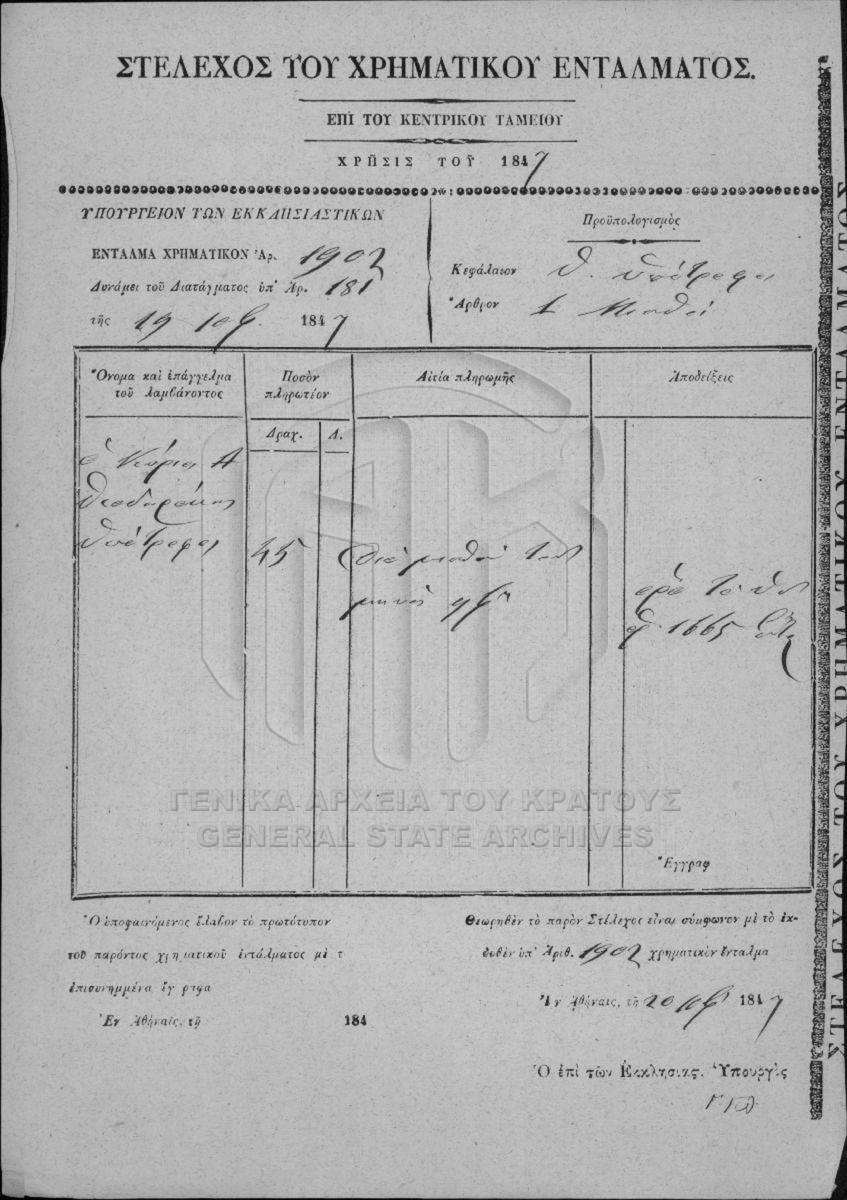 ΣΤΕΛΕΧΟΣ ΤΟΥ ΧΡΗΜΑΤΙΚΟΥ ΕΝΤΑΛΜΑΤΟΣ.
ΕΠΙ ΤΟΥ ΚΕΝΤΡΙΚΟΥ ΤΑΜΕΙΟΥ
ΧΡΗΣΙΣ ΤΟΥ 1847
ΥΠΟΥΡΓΕΙΟΝ ΤΩΝ ΕΚΚΛΗΣΙΑΣΤΙΚΩΝ
ΕΝΤΑΛΜΑ ΧΡΗΜΑΤΙΚΟΝ Ἀρ. 1902
Δυνάμει τοῦ Διατάγματος ὑπ' Ἀρ. 181
τῆς 19 1847
Προϋπολογισμὸς
Κεφάλαιον Θ. Ὑπότροφοι
Ἄρθρον 1 Μισθοὶ
Ὄνομα καὶ ἐπάγγελμα
τοῦ λαμβάνοντος
Ποσὸν
πληρωτέον
Αἰτία πληρωμῆς
Ἀποδείξεις
Δραχ.
Λ.
ὁ Κύριος Α
Θεοδωράκης
Ὑπότροφος
45
Διὰ μισθόν του
μηνὸς
1665
ΓΕΝΙΚΑ ΑΡΧΕΙΑ ΤΟΥ ΚΡΑΤΟΥΣ
GENERAL STATE ARCHIVES
Ἔγγραφ
Ὁ ὑποφαινόμενος ἔλαβον τὸ πρωτότυπον
τοῦ παρόντος χρηματικοῦ ἐντάλματος μὲ τ
ἐπισυνημμένα ἔγγραφα
Ἐν Ἀθήναις, τῇ 184
Θεωρηθὲν τὸ παρὸν Στέλεχος εἶναι σύμφωνον μὲ τὸ ἐκ-
δοθὲν ὑπ' Ἀριθ. 1902 χρηματικὸν ἔνταλμα
Ἐν Ἀθήναις, τῇ 20 1847
Ὁ ἐπὶ τῶν Ἐκκλησιας. Ὑπουργὸς
ΣΤΕΛΕΧΟΣ ΤΟΥ ΧΡΗΜΑΤΙΚΟΥ ΕΝΤΑΛΜΑΤΟΣ